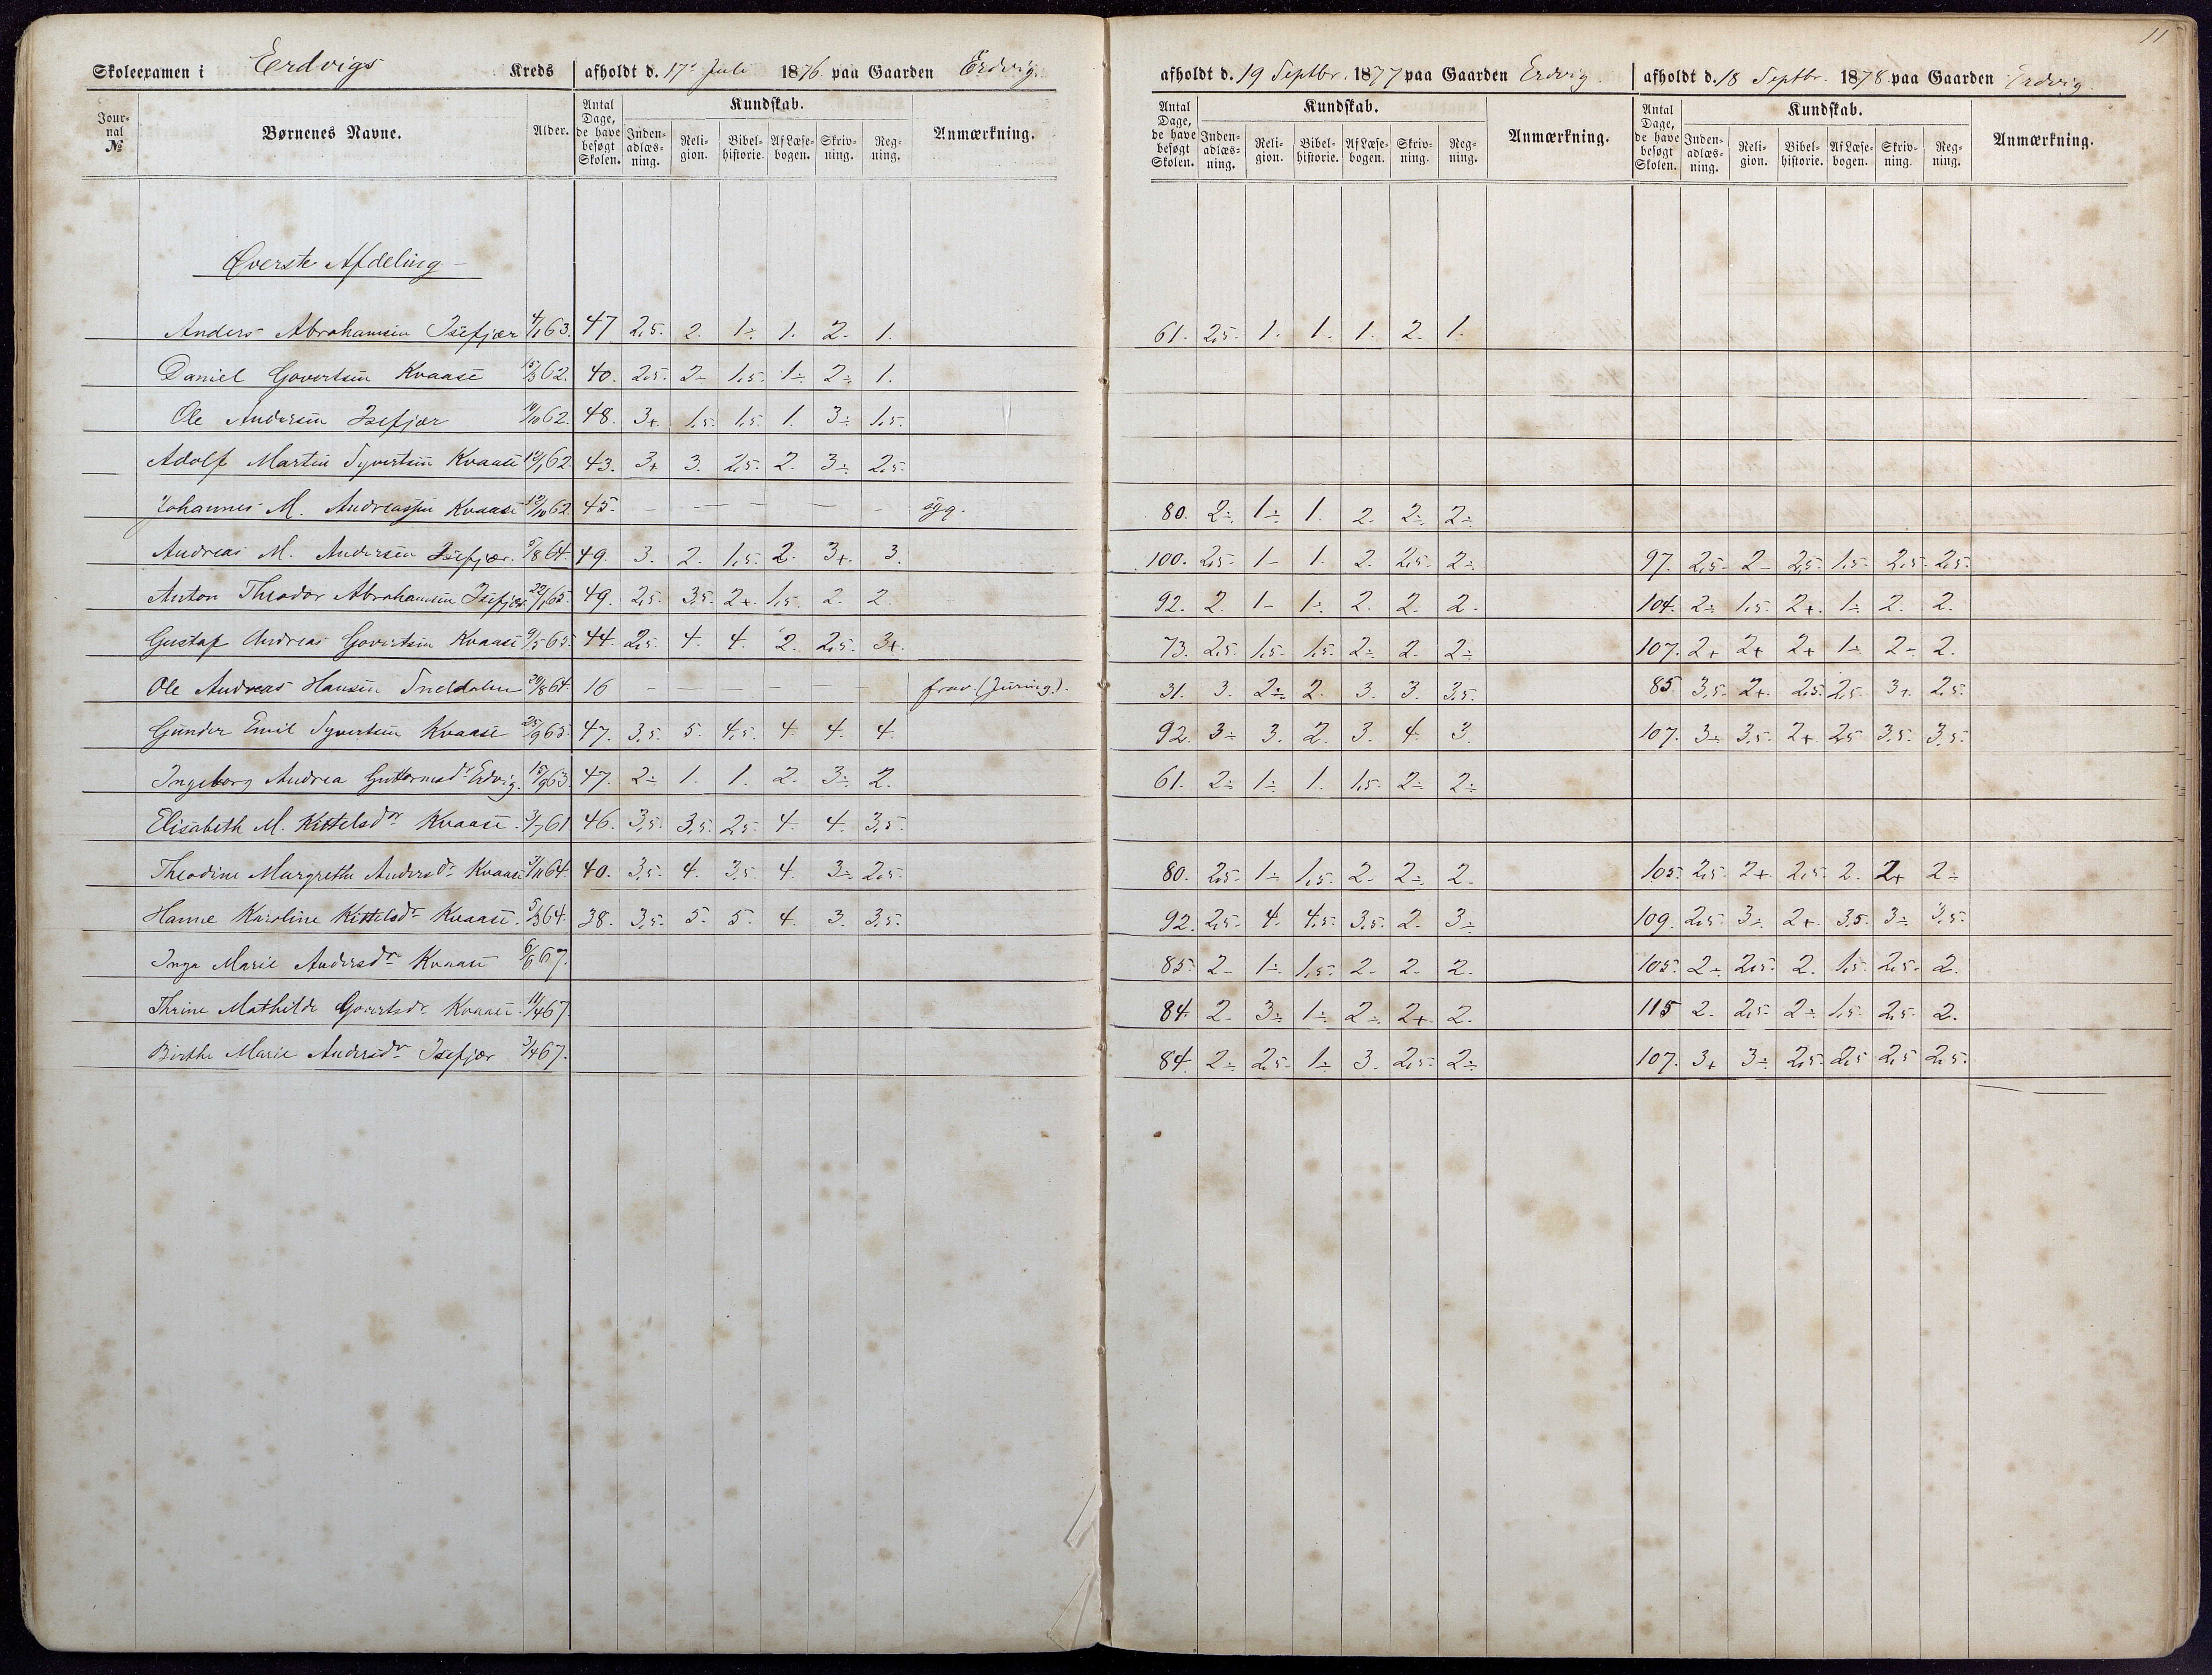 11
Skoleexamen i Erdvigs Kreds afholdt d. 17de Juli 1876 paa Gaarden Erdvig. afholdt d. 19 Septbr. 1877 paa Gaarden Erdvig. afholdt d. 18 Septbr. 1878 paa Gaarden Erdvig.
Jour-nal № Børnenes Navne. Alder. Antal Dage, de have besøgt Skolen. Kundskab. Inden-adlæs-ning. Reli-gion. Bibel-historie. Af Læse-bogen. Skriv-ning. Reg-ning. Anmærkning. Antal Dage, de have besøgt Skolen. Kundskab. Inden-adlæs-ning. Reli-gion. Bibel-historie. Af Læse-bogen. Skriv-ning. Reg-ning. Anmærkning. Antal Dage, de have besøgt Skolen. Kundskab. Inden-adlæs-ning. Reli-gion. Bibel-historie. Af Læse-bogen. Skriv-ning. Reg-ning. Anmærkning.
Øverste Afdeling
Anders Abrahamsen Isefjær 4/1 63. 47 2,5. 2. 1÷ 1. 2- 1. 61. 2,5. 1. 1. 1. 2. 1.
Daniel Govertsen Kvaase 15/3 62. 40. 2,5. 2÷ 1,5. 1÷ 2÷ 1.
Ole Andersen Isefjær /10 62. 48. 3+ 1,5. 1,5. 1. 3÷ 1,5.
Adolf Martin Syvertsen Kvaase 12/1 62. 43. 3+ 3. 2,5. 2. 3÷ 2,5.
Johannes M. Andreassen Kvaase 12/10 62. 45. - - - - - - syg. 80. 2÷ 1÷ 1. 2. 2÷ 2÷
Andreas M. Andersen Isefjær. 5/8 64. 49. 3. 2. 1,5. 2. 3+. 3. 100. 2,5. 1- 1. 2. 2,5. 2÷ 97. 2,5. 2- 2,5. 1,5. 2,5. 2,5.
Anton Theodor Abrahamsen Isefjær. 22/1 65. 49. 2,5. 3,5. 2+. 1,5. 2. 2. 92. 2. 1- 1÷ 2. 2. 2. 104. 2÷ 1,5. 2+. 1÷ 2. 2.
Gustaf Andreas Govertsen Kvaase 9/5 65. 44. 2,5. 4. 4. 2. 2,5. 3+. 73. 2,5. 1,5. 1,5. 2÷ 2. 2÷ 107. 2+ 2+ 2+ 1÷ 2÷ 2.
Ole Andreas Hansen Sneldalen 20/8 64. 16 - - - - - - frav. 31. 3. 2÷ 2. 3. 3. 3,5. 85. 3,5. 2+. 2,5. 2,5. 3+. 2,5.
Gunder Emil Syvertsen Kvaase 25/9 65. 47. 3,5. 5. 4,5. 4. 4. 4. 92. 3÷ 3. 2. 3. 4. 3. 107. 3÷ 3,5. 2+. 2,5 3,5. 3,5.
Ingeborg Andrea Guttormsdr Erdvig. 15/9 63. 47. 2÷ 1. 1. 2. 3÷ 2. 61. 2÷ 1÷ 1. 1,5. 2÷ 2÷
Elisabeth M. Kittelsdr Kvaase. 3/7 61 46. 3,5. 3,5. 2,5. 4. 4. 3,5.
Theodine Margrethe Andersdr Kvaase 3/11 64. 40. 3,5. 4. 3,5. 4. 3÷ 2,5. 80. 2,5. 1÷ 1,5. 2. 2÷ 2. 105. 2,5. 2+. 2,5. 2. 2+ 2÷
Hanne Karoline Kittelsdr Kvaase. 5/3 64. 38. 3,5. 5. 5. 4. 3. 3,5. 92. 2,5. 4. 4,5. 3,5. 2. 3÷ 109. 2,5. 3÷ 2+. 3,5. 3÷ 3,5.
Inga Marie Andersdr Kvaase 6/6 67. 85. 2- 1÷ 1,5. 2- 2. 2. 105. 2÷ 2,5. 2. 1,5. 2,5. 2.
Thrine Mathilde Govertsdr Kvaase. 11/4 67. 84. 2. 3÷ 1÷ 2÷ 2+. 2. 115 2. 2,5. 2÷ 1,5. 2,5. 2.
Birthe Marie Andersdr Isefjær 3/4 67. 84. 2÷ 2,5. 1÷ 3. 2,5. 2÷ 107. 3+ 3÷ 2,5. 2,5 2,5 2,5.